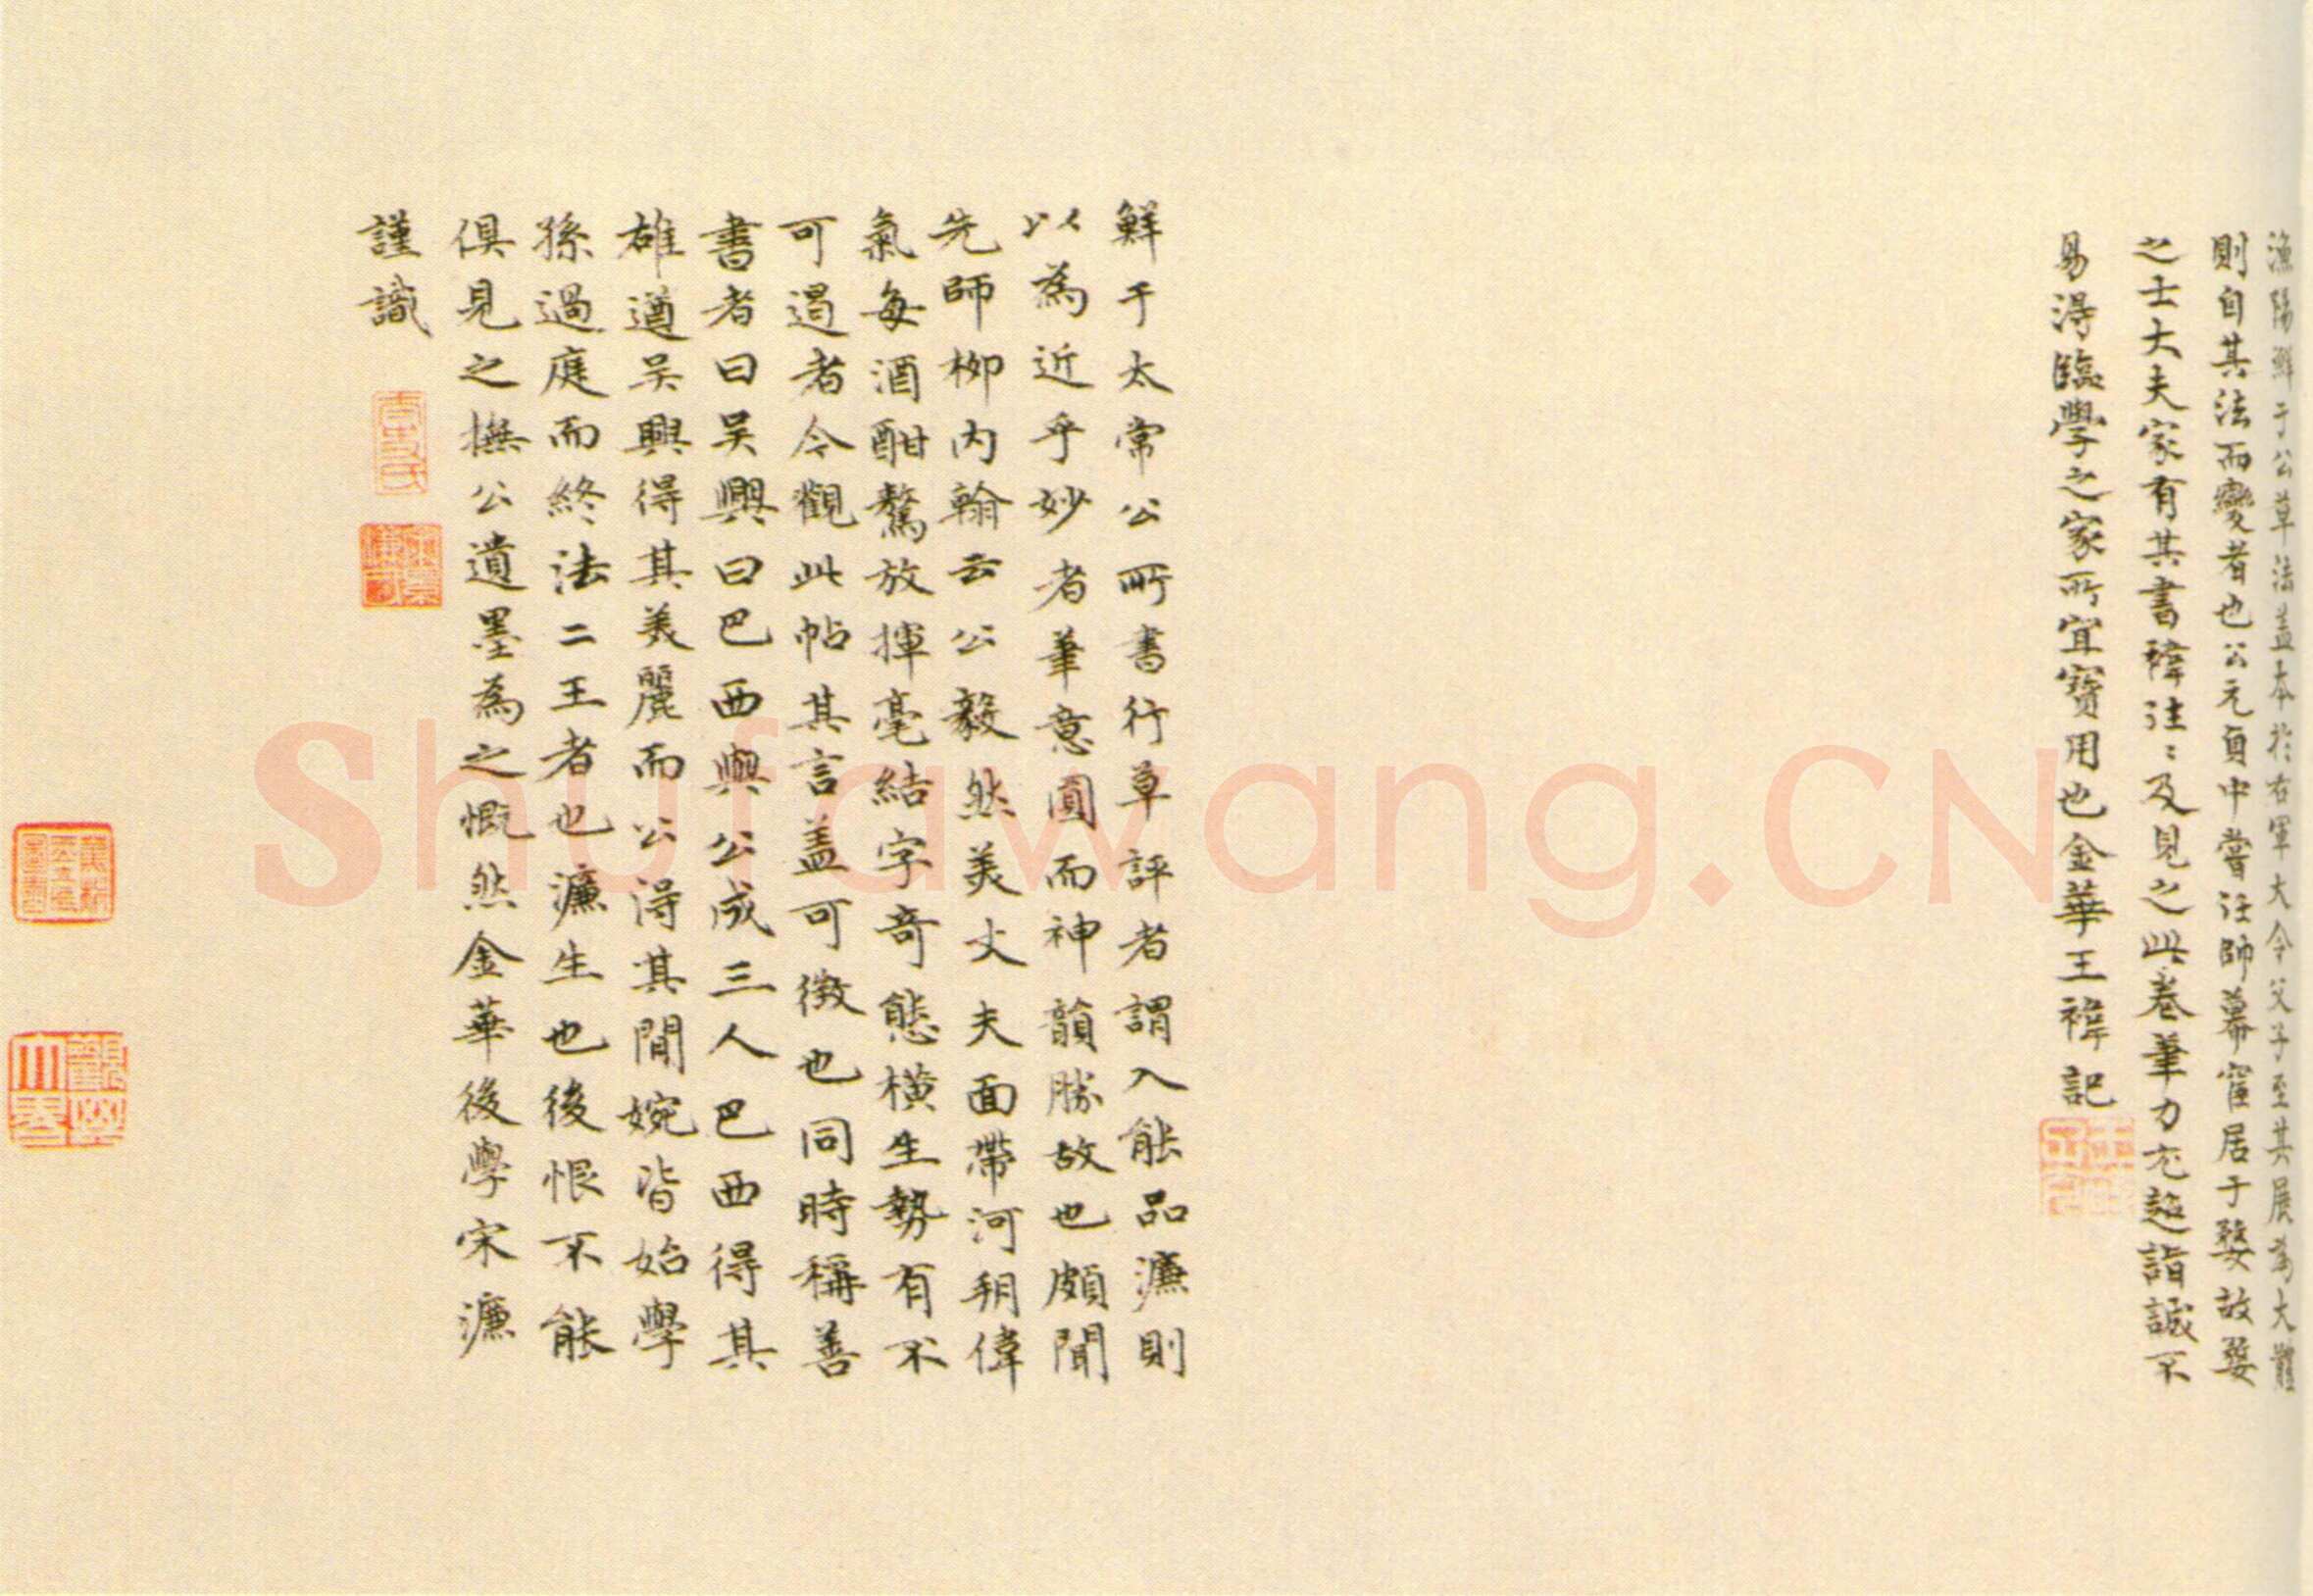 漁陽鮮于公草法蓋本於右軍大令父子至其展為大體
則自其法而變者也公元貞中嘗往師幕窟居于婺故婺
之士大夫家有其書禕注〻及見之此卷筆力尤超詣誠不
易得臨學之家所宜寶用也金華王禕記
鮮于太常公所書行草評者謂入能品濂則
以為近乎妙者筆意圓而神韻勝故也頗聞
先師柳內翰云公毅然美丈夫面帶河朔偉
氣每酒酣驁放揮毫結字奇態橫生勢有不
可遏者令觀此帖其言蓋可徵也同時稱善
書者曰吳興曰巴西與公成三人巴西得其
雄遒吳興得其美麗而公得其閒婉皆始學
孫過庭而終法二王者也濂生也後恨不能
俱見之撫公遺墨為之慨然金華後學宋濂
謹識
Shufawang.CN